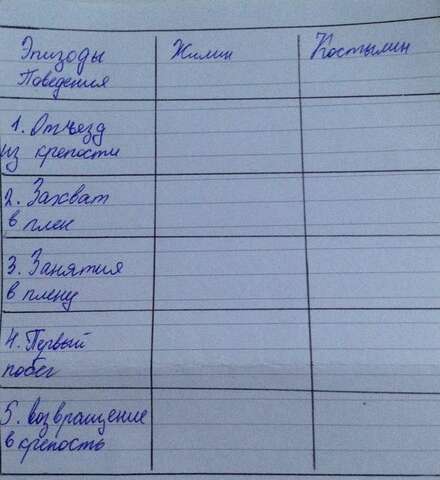 Эпизоды Жилин Костылин
Поведения
1. Отъезд
из крепости
2. Захват
в плен
3. Занятия
в плену
4. Первый
побег
5. возвращение
в крепость